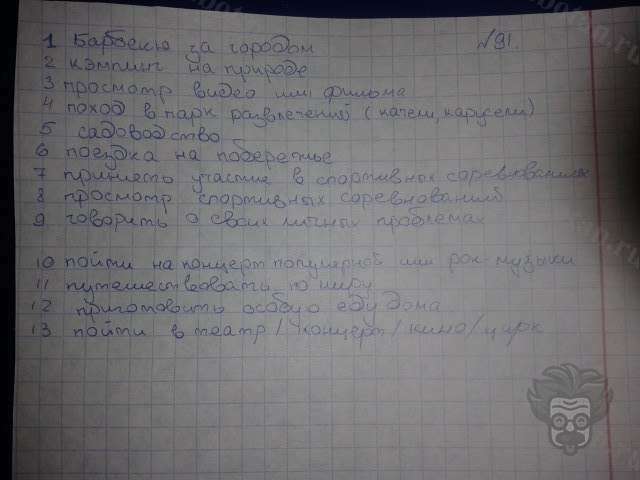 № 91.
1 Барбекю за городом
2 кэмпинг на природе
3 просмотр видео или фильма
4 поход в парк развлечений (качели, карусели)
5 садоводство
6 поездка на побережье
7 принять участие в спортивных соревнованиях
8 просмотр спортивных соревнований
9 говорить о своих личных проблемах
10 пойти на концерт популярной или рок-музыки
11 путешествовать по миру
12 приготовить особую еду дома
13 пойти в театр/концерт/кино/цирк